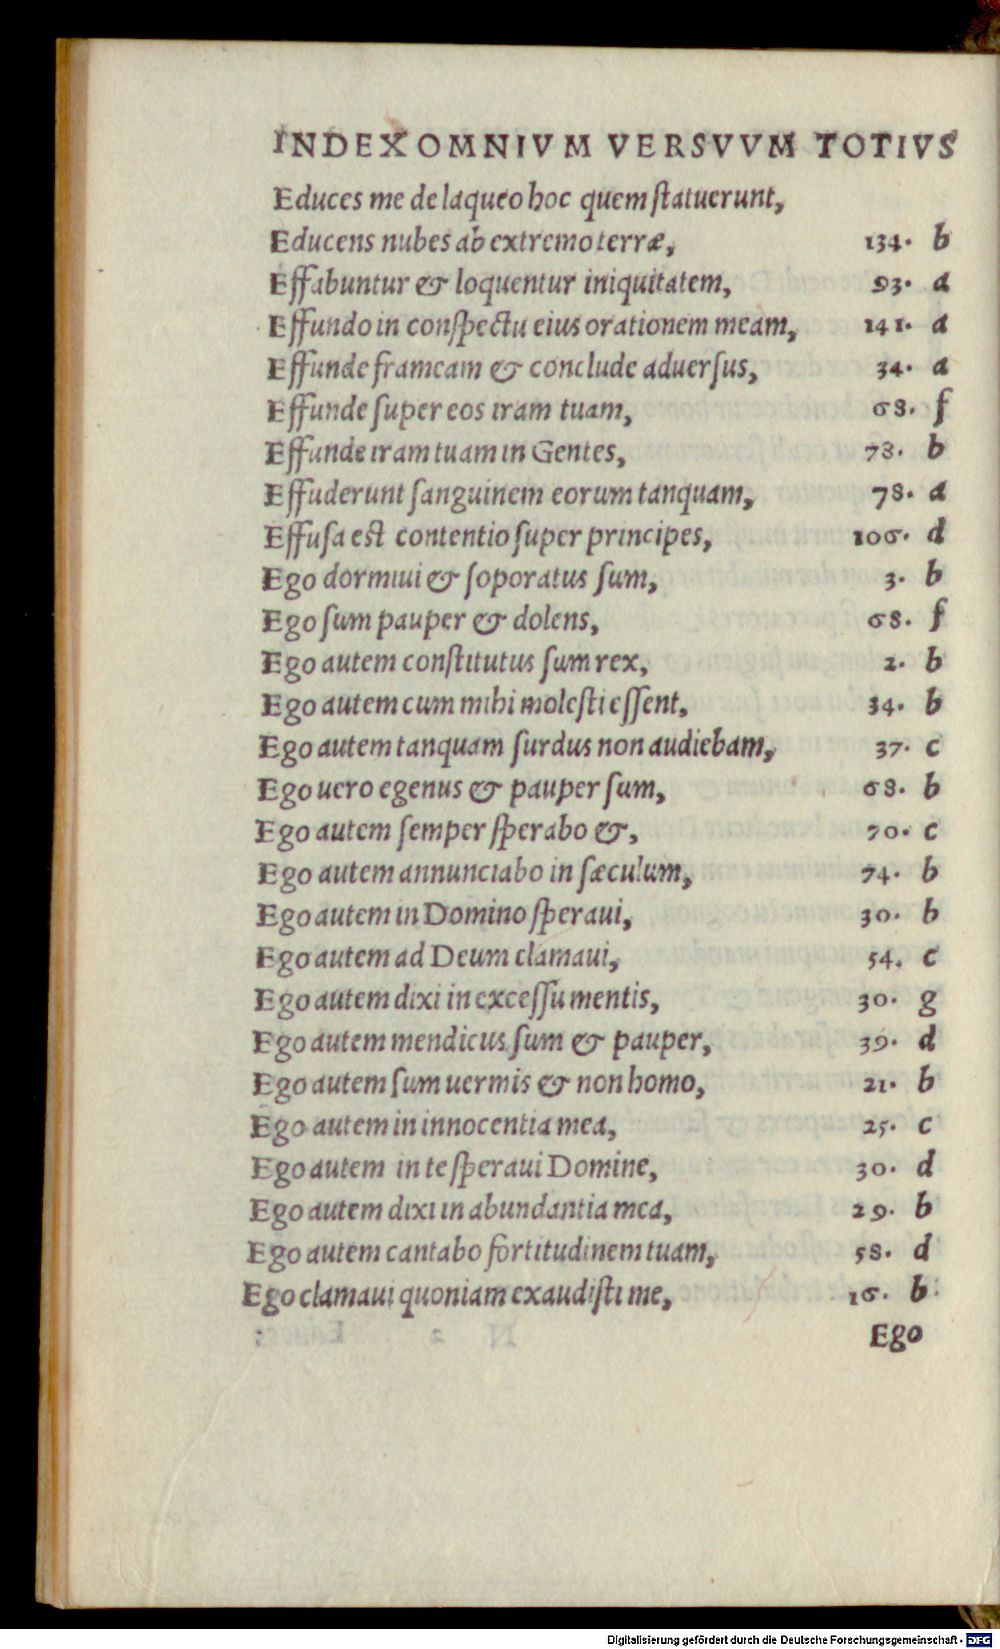 INDEX OMNIVM VERSVVM TOTIVS
Educes me de laqueo hoc quem ſtatuerunt,
Educens nubes ab extremo terræ, 134. b
Effabuntur & loquentur iniquitatem, 93. a
Effundo in conſpectu eius orationem meam, 141. a
Effunde frameam & conclude aduerſus, 34. a
Effunde ſuper eos iram tuam, 68. f
Effunde iram tuam in Gentes, 78. b
Effuderunt ſanguinem eorum tanquam, 78. a
Effuſa est contentio ſuper principes, 106. d
Ego dormiui & ſoporatus ſum, 3. b
Ego ſum pauper & dolens, 68. f
Ego autem conſtitutus ſum rex, 2. b
Ego autem cum mihi moleſti eſſent, 34. b
Ego autem tanquam ſurdus non audiebam, 37. c
Ego uero egenus & pauper ſum, 68. b
Ego autem ſemper ſperabo &, 70. c
Ego autem annunciabo in ſæculum, 74. b
Ego autem in Domino ſperaui, 30. b
Ego autem ad Deum clamaui, 54. c
Ego autem dixi in exceſſu mentis, 30. g
Ego autem mendicus ſum & pauper, 39. d
Ego autem ſum uermis & non homo, 21. b
Ego autem in innocentia mea, 25. c
Ego autem in te ſperaui Domine, 30. d
Ego autem dixi in abundantia mea, 29. b
Ego autem cantabo fortitudinem tuam, 58. d
Ego clamaui quoniam exaudiſti me, 16. b
Ego
Digitalisierung gefördert durch die Deutsche Forschungsgemeinschaft - DFG